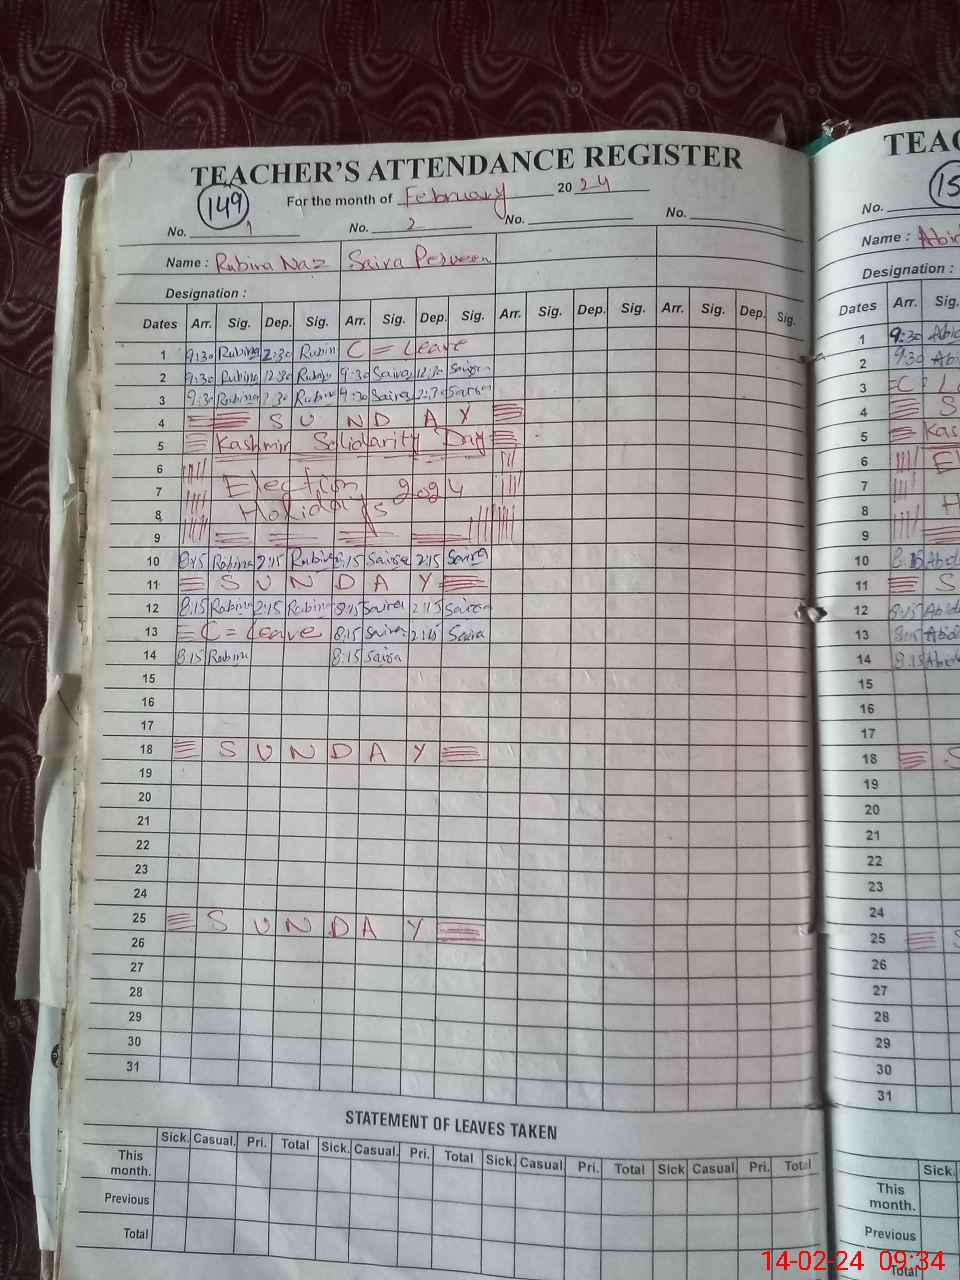 TEACHER'S ATTENDANCE REGISTER
149
For the month of February 2024
No. 1 No. 2 No. No.
Name : Rubina Naz Saira Perveen
Designation :
Dates Arr. Sig. Dep. Sig. Arr. Sig. Dep. Sig. Arr. Sig. Dep. Sig. Arr. Sig. Dep. Sig.
1 9:30 Rubina 2:30 Rubin C = Leave
2 9:30 Rubina 12:30 Rubina 9:30 Saira 12:30 Saira
3 9:30 Rubina 2:30 Rubina 9:30 Saira 2:30 Saira
4 SUNDAY
5 Kashmir Solidarity Day
6
7 Election 2024
8 Holidays
9
10 8:15 Rubina 2:15 Rubina 8:15 Saira 2:15 Saira
11 SUNDAY
12 8:15 Rubina 2:15 Rubina 8:15 Saira 2:15 Saira
13 C = Leave 8:15 Saira 2:15 Saira
14 8:15 Rubina 8:15 Saira
15
16
17
18 SUNDAY
19
20
21
22
23
24
25 SUNDAY
26
27
28
29
30
31
STATEMENT OF LEAVES TAKEN
Sick. Casual. Pri. Total Sick. Casual. Pri. Total Sick. Casual Pri. Total Sick Casual Pri. Total
This month.
Previous
Total
TEAC
15
No.
Name : Abid
Designation :
Dates Arr. Sig.
1 9:30 Abid
2 9:30 Abi
3 C L
4 S
5 Kas
6 El
7
8 H
9
10 8:15 Abid
11 S
12 8:15 Abid
13 8:15 Abid
14 8:15 Abid
15
16
17
18 S
19
20
21
22
23
24
25 S
26
27
28
29
30
31
Sick.
This month.
Previous
Total
14-02-24 09:34